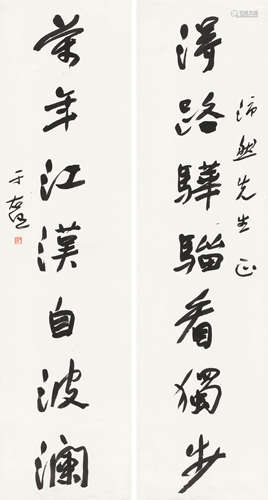 沛然先生正
得路驊騮看獨步
萬年江漢自波瀾
于右任